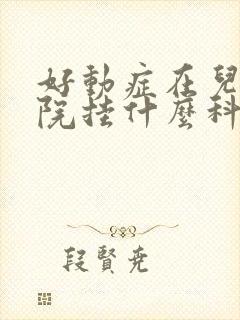 好動症在兒
院挂什麼科
段賢尭